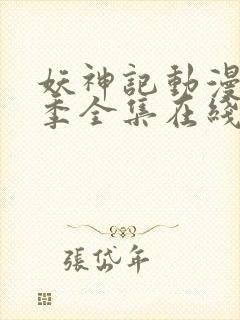 妖神記動漫
季全集在綫
張岱年